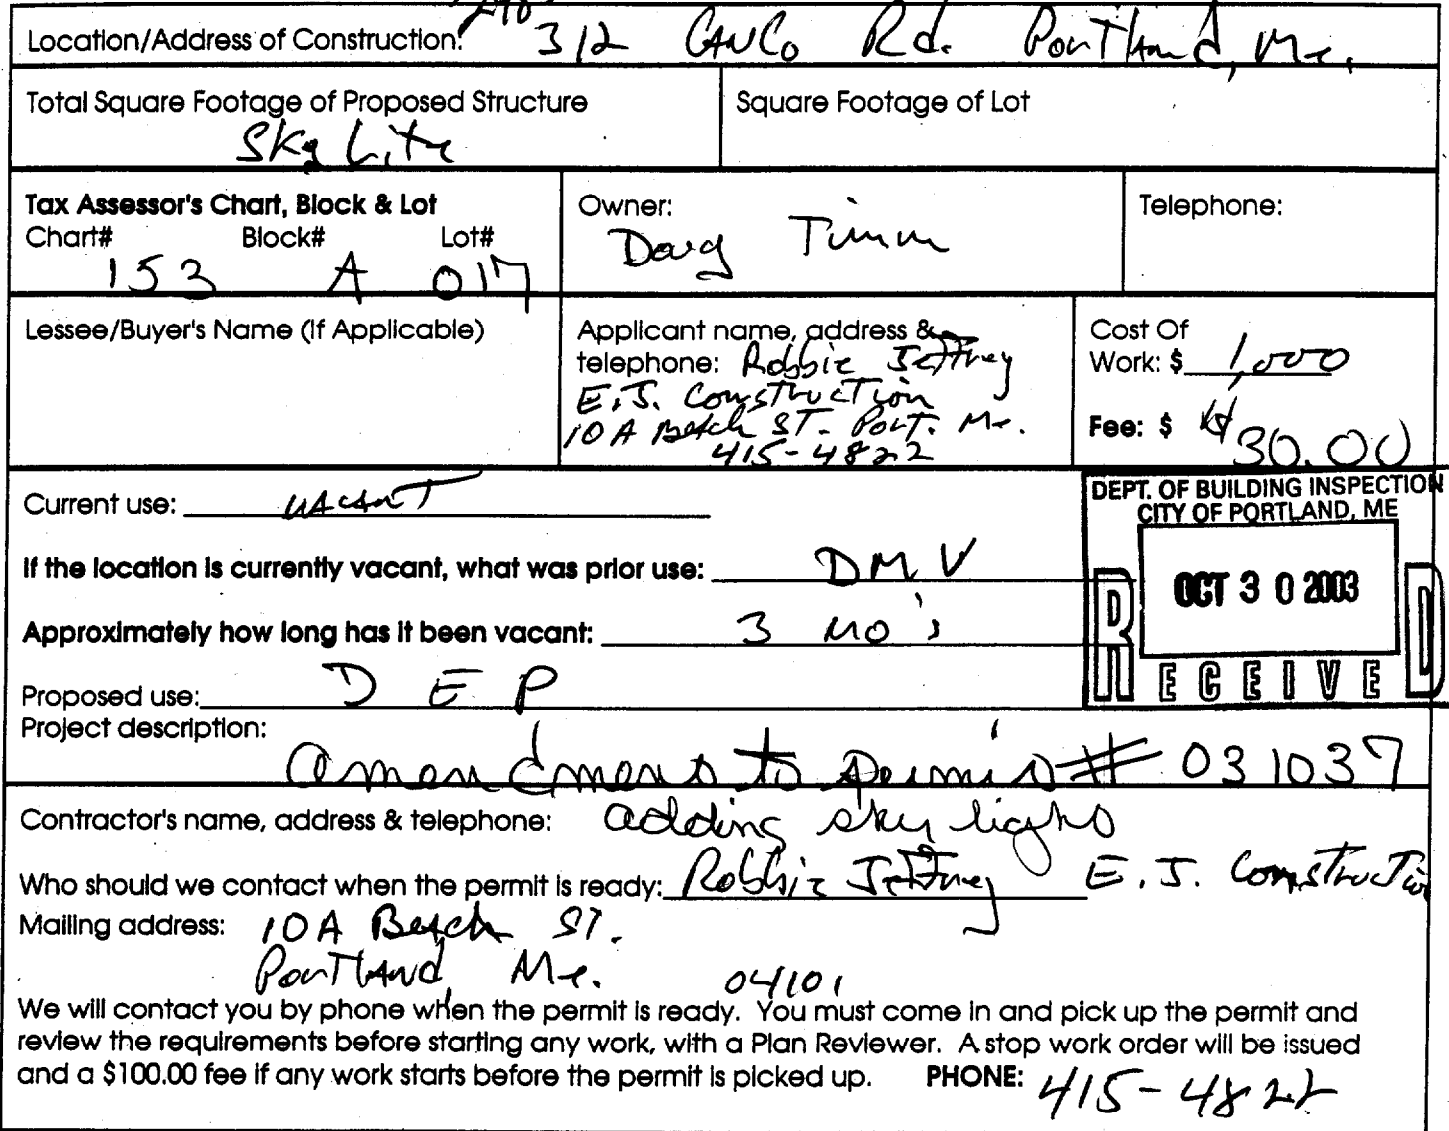 Location/Address of Construction: 312 CANCo Rd. Portland, Me.
Total Square Footage of Proposed Structure
Sky Lite
Square Footage of Lot
Tax Assessor's Chart, Block & Lot
Chart# Block# Lot#
153 A 017
Owner:
Doug Timm
Telephone:
Lessee/Buyer's Name (If Applicable)
Applicant name, address &
telephone: Robbie Jeffrey
E.J. Construction
10 A Beach ST. Port. Me.
415-4822
Cost Of
Work: $ 1,000
Fee: $ $30.00
Current use: VACANT
If the location is currently vacant, what was prior use: DMV
Approximately how long has it been vacant: 3 Mo's
Proposed use: DEP
DEPT. OF BUILDING INSPECTION
CITY OF PORTLAND, ME
OCT 30 2003
RECEIVED
Project description:
amendment to permit # 031037
adding sky light
Contractor's name, address & telephone:
Who should we contact when the permit is ready: Robbie Jeffrey E.J. Construction
Mailing address: 10A Beach ST.
Portland, Me. 04101
We will contact you by phone when the permit is ready. You must come in and pick up the permit and
review the requirements before starting any work, with a Plan Reviewer. A stop work order will be issued
and a $100.00 fee if any work starts before the permit is picked up. PHONE: 415-4822